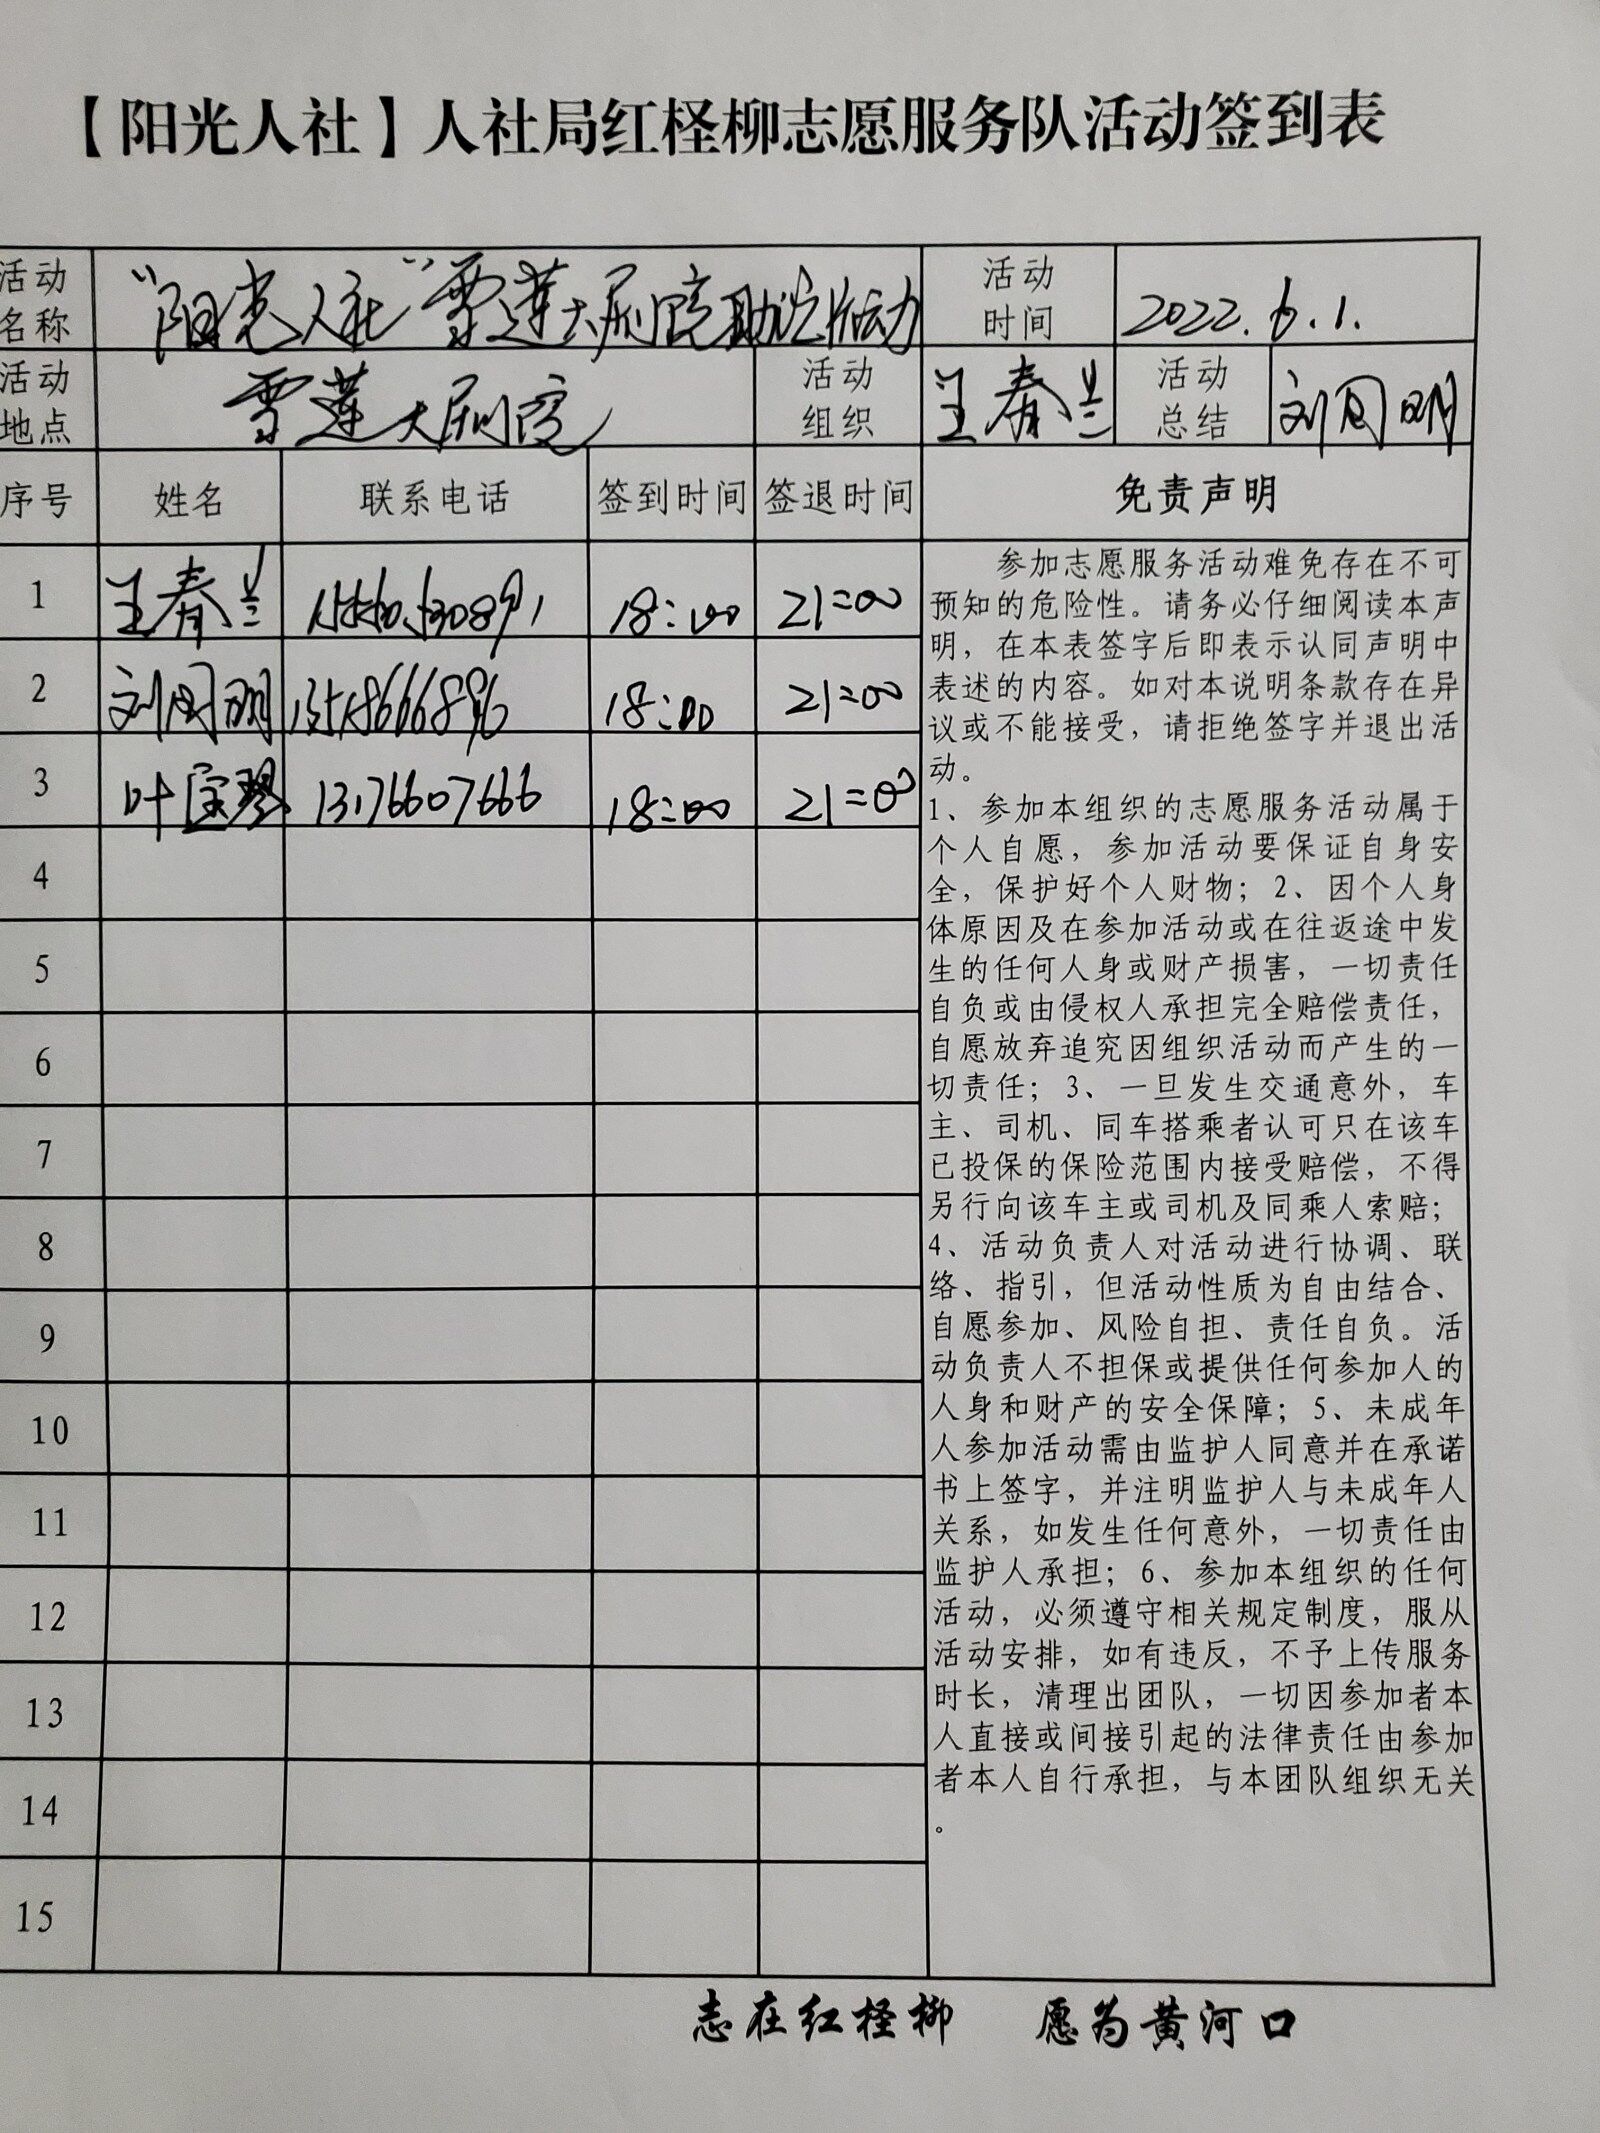 【阳光人社】人社局红柽柳志愿服务队活动签到表
活动名称 “阳光人社”雪莲大剧院助演活动 活动时间 2022.6.1.
活动地点 雪莲大剧院 活动组织 王春兰 活动总结 刘同明
序号 姓名 联系电话 签到时间 签退时间 免责声明
1 王春兰 18:00 21:00
2 刘同明 18:00 21:00
3 叶宝琴 13176607666 18:00 21:00
4
5
6
7
8
9
10
11
12
13
14
15
参加志愿服务活动难免存在不可
预知的危险性。请务必仔细阅读本声
明，在本表签字后即表示认同声明中
表述的内容。如对本说明条款存在异
议或不能接受，请拒绝签字并退出活
动。
1、参加本组织的志愿服务活动属于
个人自愿，参加活动要保证自身安
全，保护好个人财物；2、因个人身
体原因及在参加活动或在往返途中发
生的任何人身或财产损害，一切责任
自负或由侵权人承担完全赔偿责任，
自愿放弃追究因组织活动而产生的一
切责任；3、一旦发生交通意外，车
主、司机、同车搭乘者认可只在该车
已投保的保险范围内接受赔偿，不得
另行向该车主或司机及同乘人索赔；
4、活动负责人对活动进行协调、联
络、指引，但活动性质为自由结合、
自愿参加、风险自担、责任自负。活
动负责人不担保或提供任何参加人的
人身和财产的安全保障；5、未成年
人参加活动需由监护人同意并在承诺
书上签字，并注明监护人与未成年人
关系，如发生任何意外，一切责任由
监护人承担；6、参加本组织的任何
活动，必须遵守相关规定制度，服从
活动安排，如有违反，不予上传服务
时长，清理出团队，一切因参加者本
人直接或间接引起的法律责任由参加
者本人自行承担，与本团队组织无关
。
志在红柽柳 愿为黄河口